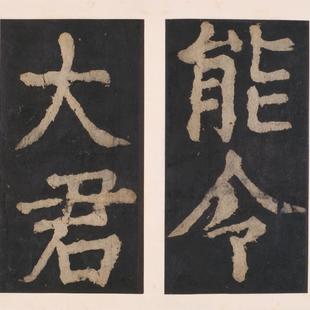 能令
大君